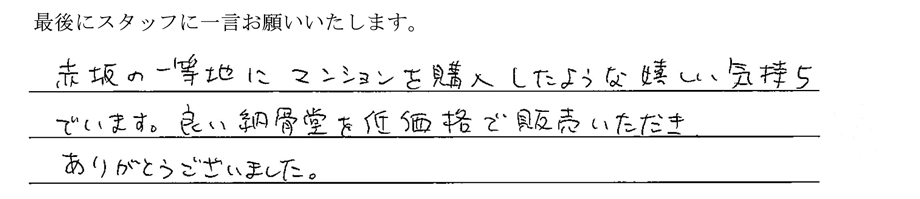 最後にスタッフに一言お願いいたします。
赤坂の一等地にマンションを購入したような嬉しい気持ち
でいます。良い納骨堂を低価格で販売いただき
ありがとうございました。